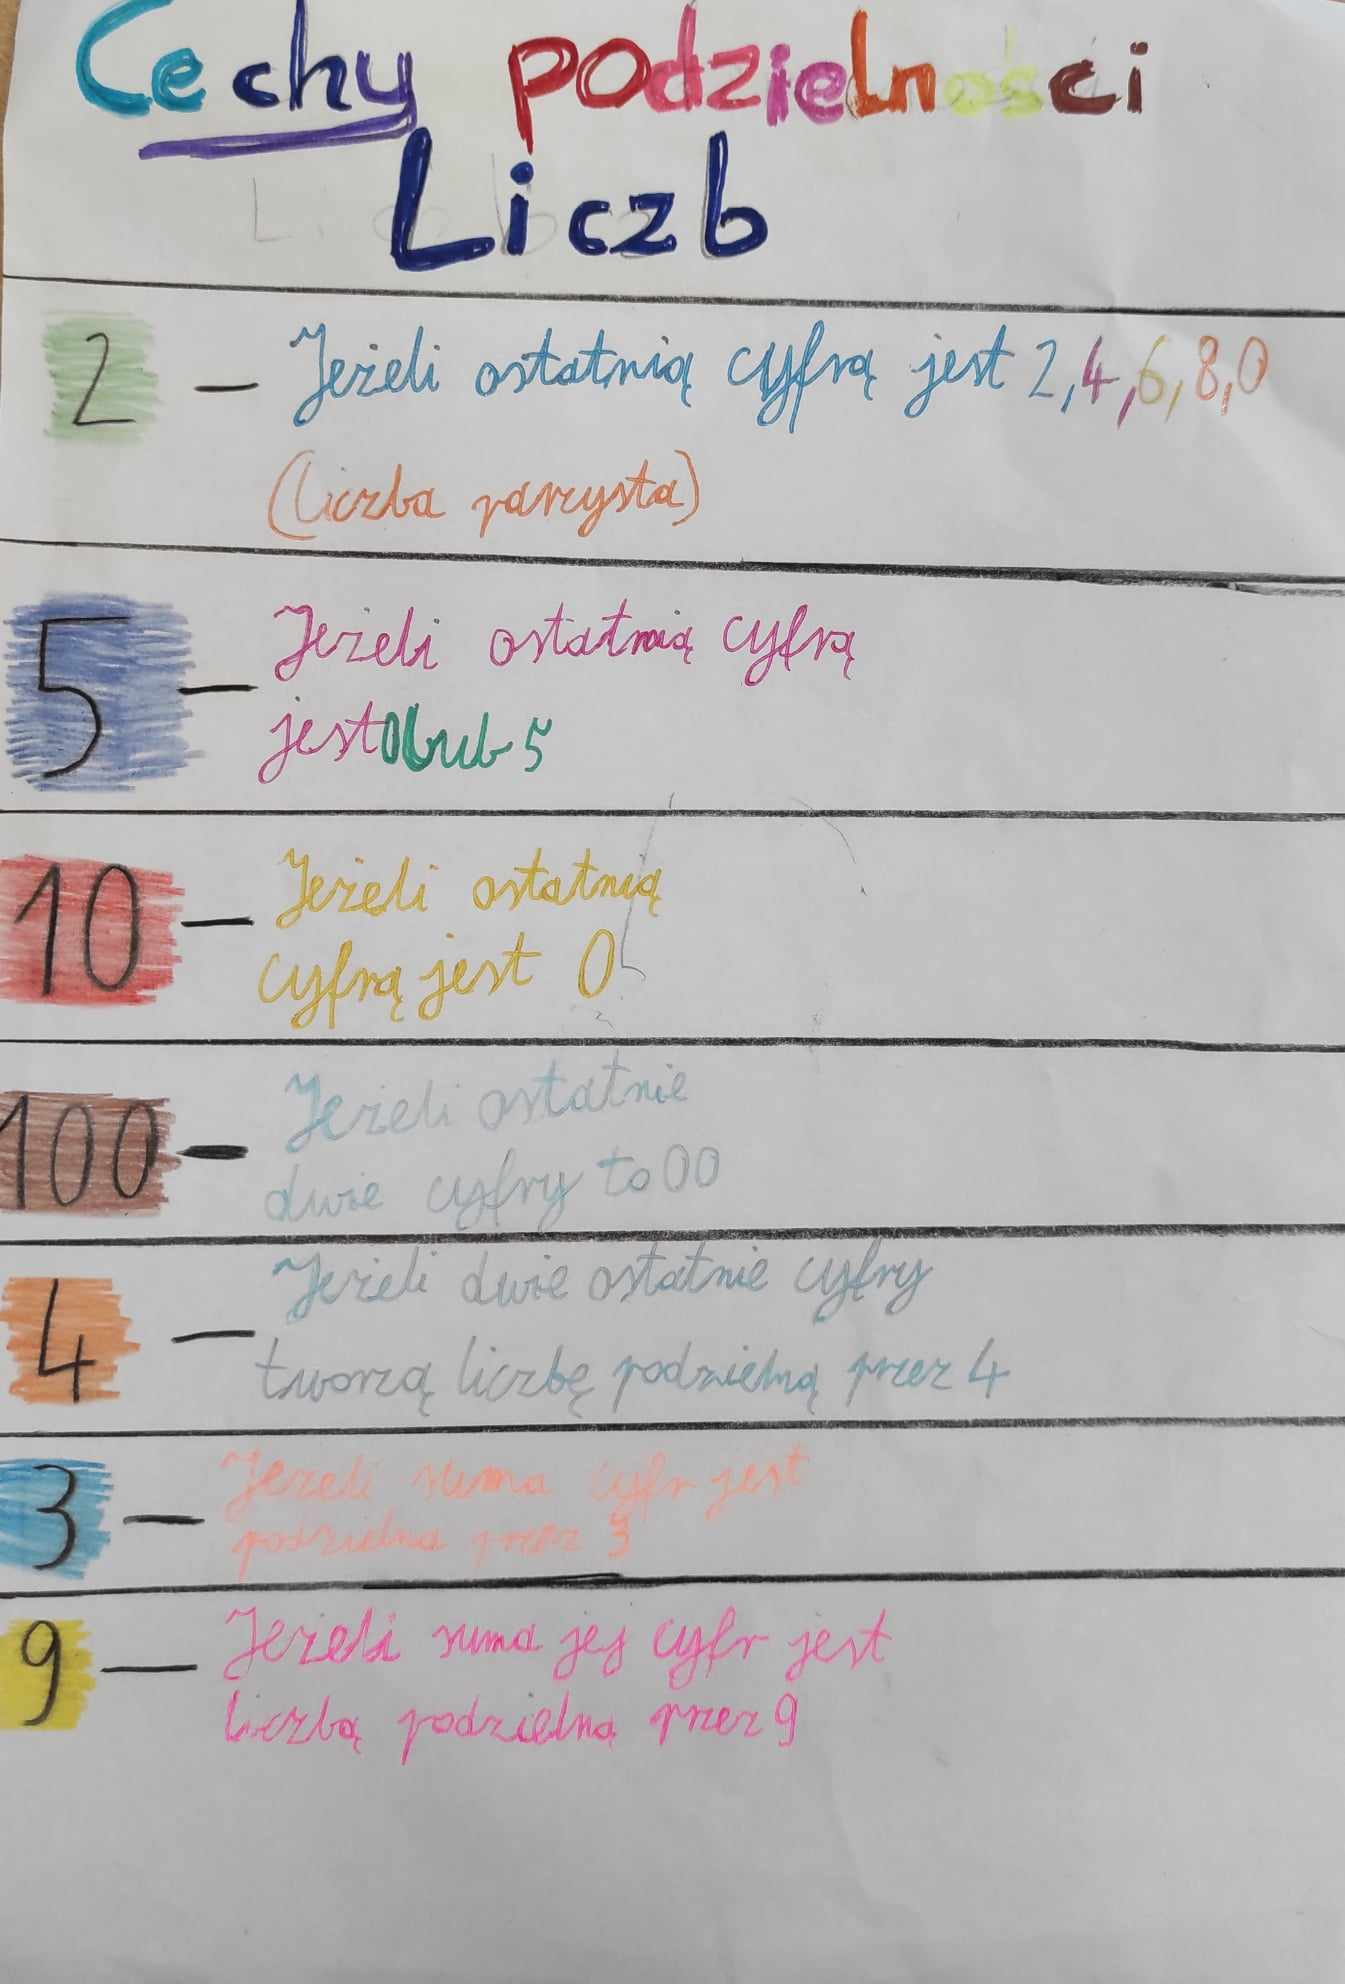 Cechy podzielności
Liczb
2 – Jeżeli ostatnią cyfrą jest 2,4,6,8,0
(liczba parzysta)
5 – Jeżeli ostatnią cyfrą
jest 0 lub 5
10 – Jeżeli ostatnią
cyfrą jest 0
100 – Jeżeli ostatnie
dwie cyfry to 00
4 – Jeżeli dwie ostatnie cyfry
tworzą liczbę podzielną przez 4
3 – Jeżeli suma cyfr jest
podzielna przez 3
9 – Jeżeli suma jej cyfr jest
liczbą podzielną przez 9